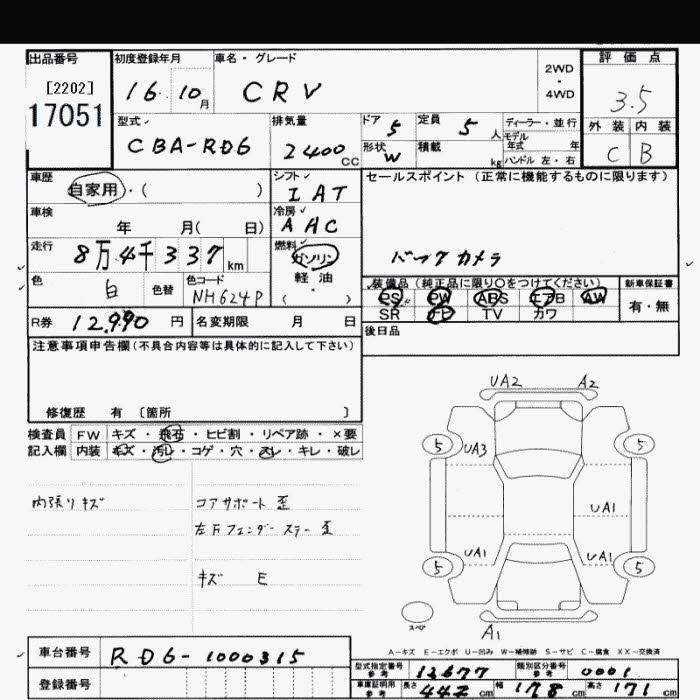 出品番号 初度登録年月 車名・グレード 2WD・4WD 評価点
[2202]
17051 16. 10月 CRV 3.5
型式 排気量 ドア 5 定員 5人 ディーラー・並行 外装 内装
CBA-RD6 2400CC 形状 W 積載 kg モデル年式 年 C B
ハンドル 左・右
車歴 自家用・( ) シフト IAT セールスポイント (正常に機能するものに限ります)
車検 年 月( 日) 冷房 AAC
走行 8万4千337km 燃料 ガソリン バックカメラ
軽・油
色 白 色替 色コード NH624P ( ) 装備品(純正品に限り○をつけてください) 新車保証書
PS PW ABS エアB AW 有・無
R券 12,990円 名変期限 月 日 SR TV カワ
後日品
注意事項申告欄(不具合内容等は具体的に記入して下さい)
修復歴 有 〔箇所 〕
検査員 FW キズ・飛石・ヒビ割・リペア跡・×要
記入欄 内装 キズ・汚レ・コゲ・穴・スレ・キレ・破レ
内張りキズ コアサポート 歪
左Fフェンダーステー 歪
キズ E
UA2 A2
5 UA3 5
UA1
5 UA1 UA1 5
スペア A1
A-キズ E-エクボ U-凹み W-補修跡 S-サビ C-腐食 XX-交換済
車台番号 RD6-1000315
型式指定番号 参考 12677 類別区分番号 参考 0001
登録番号 車庫証明用 参考 長さ 442cm 幅 178cm 高さ 171cm